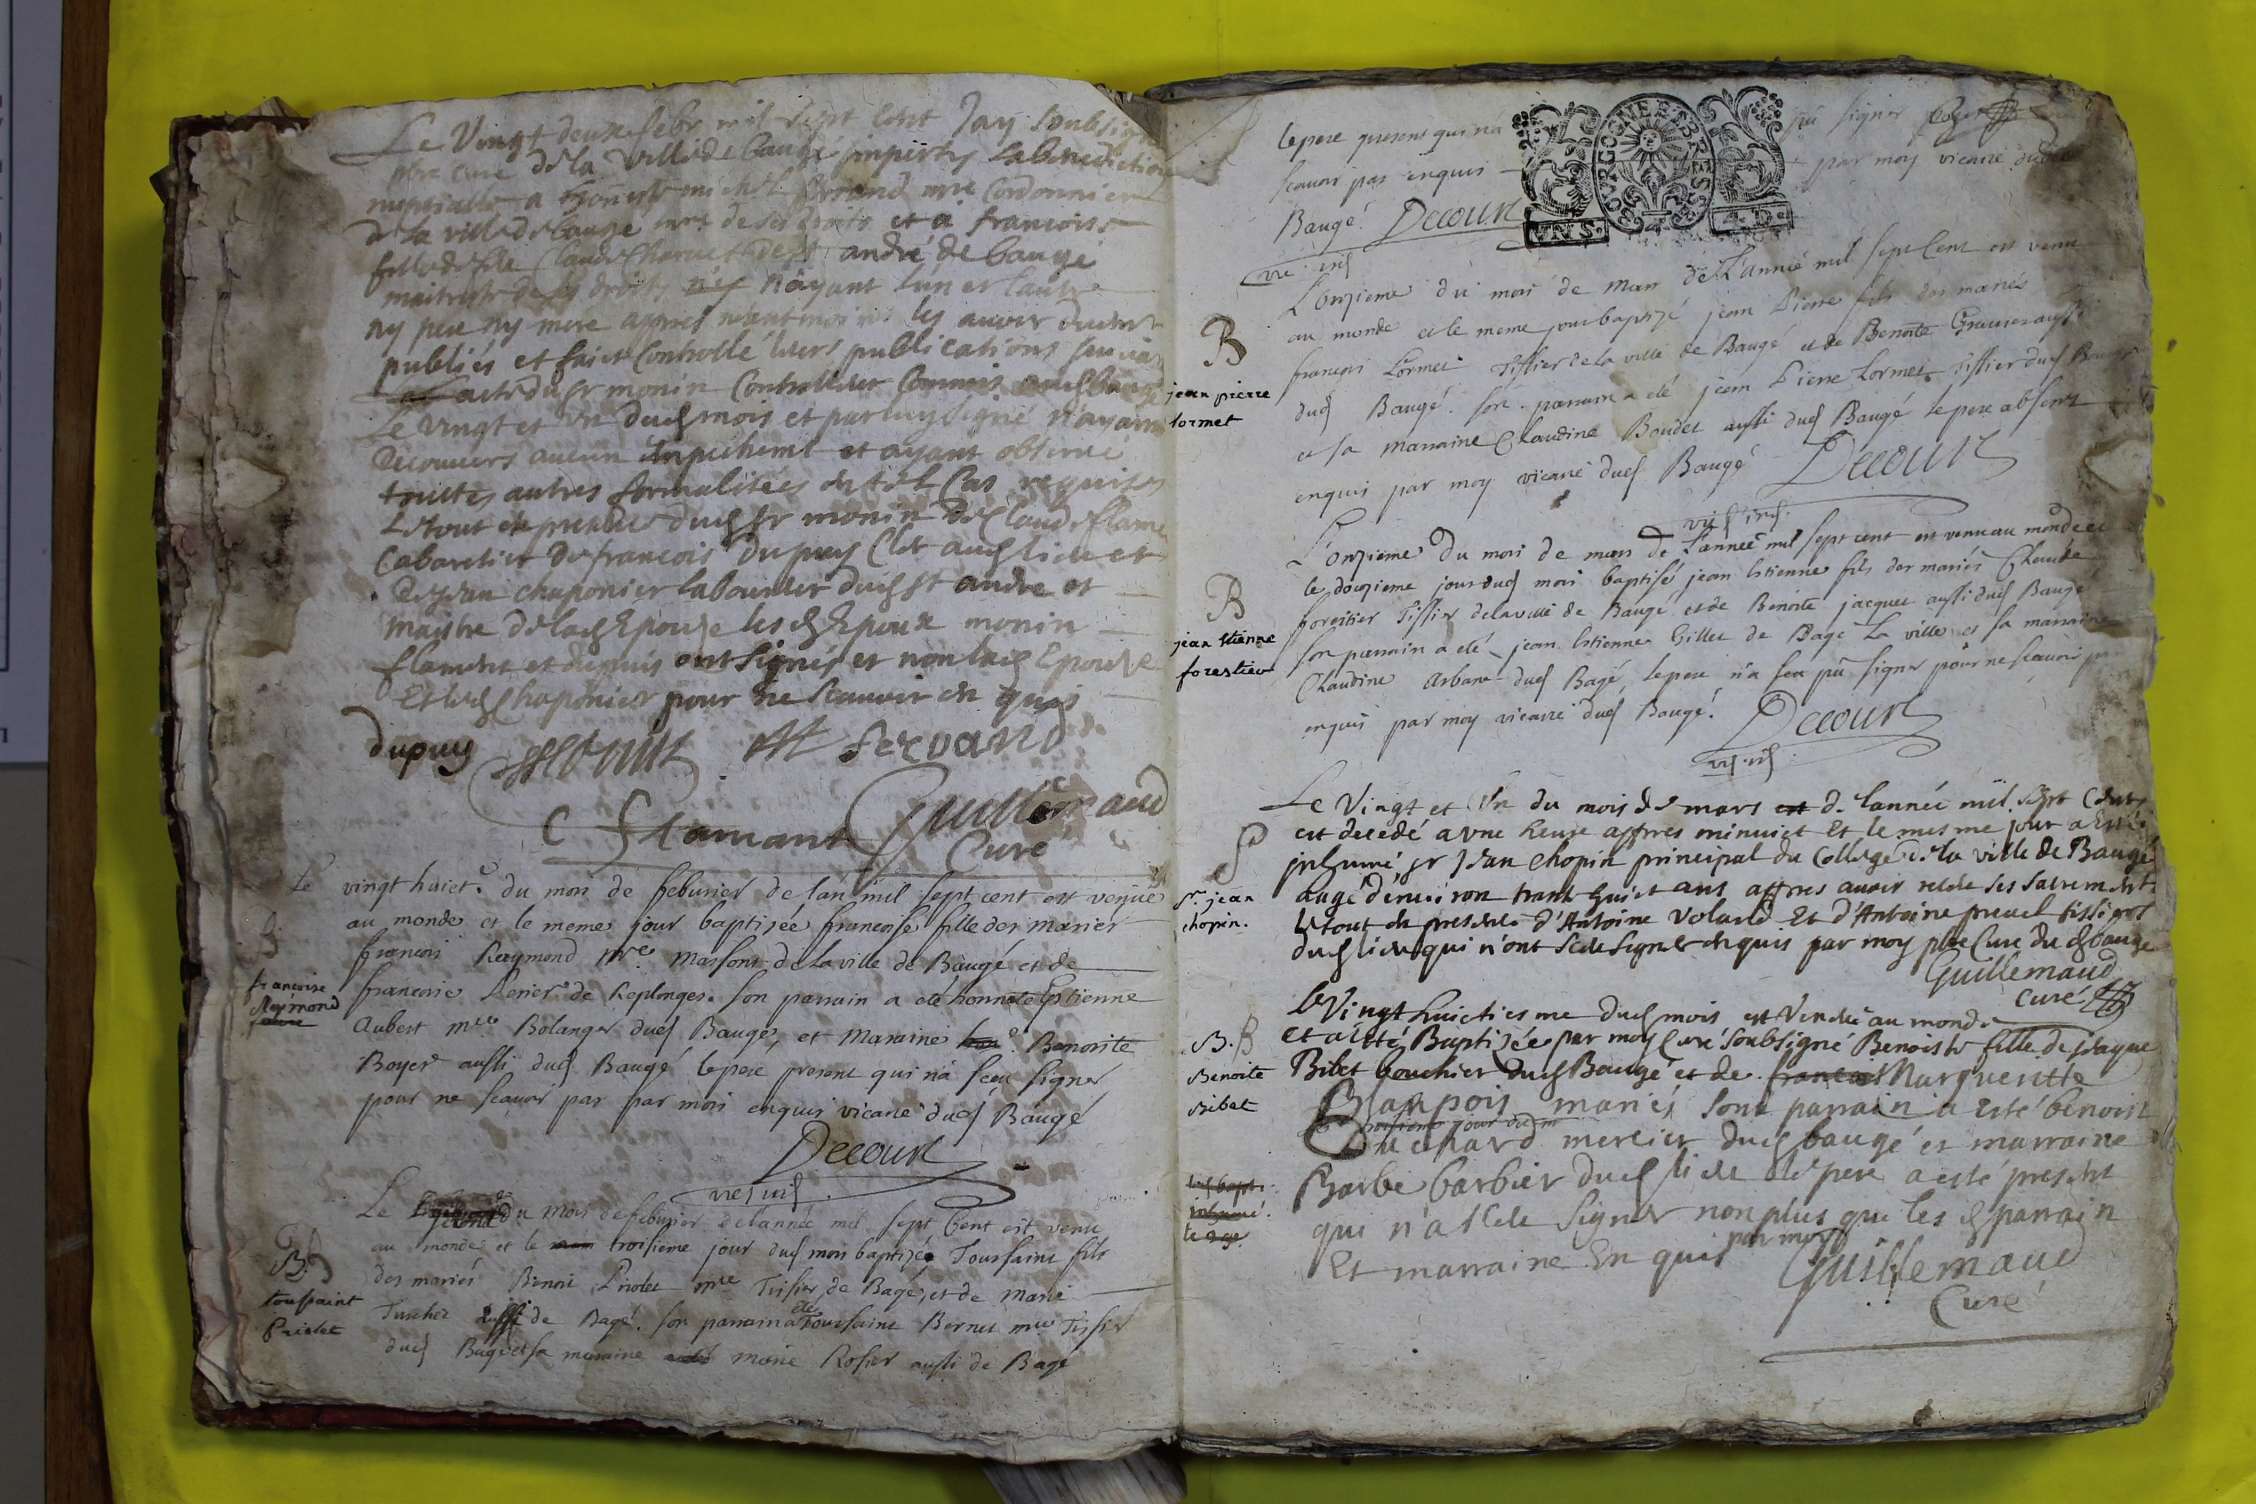 Le Vingt deux febr mil sept cent Jay soubsigné
pbre curé de la ville de baugé imparty la benediction
nuptialle a honeste michel ferrand mre Cordonnier
de la ville de baugé mre de ses droits et a francoise
fille de feu Claude Charvet de st andré de baugé
maitresse de ses droits n'ayant l'un et lautre
ny pere ny mere apres neantmoins les auoir duement
publiés et faict Controllé leurs publications suivant
acte du sr monin Controlleur Commis aud baugé
Le vingt et un dud mois et par luy signé n'ayant
decouuers aucun Empechemt et ayant obserué
touttes autres formalitées en tel Cas requises
Le tout en presence dud sr monin de Claude flamant
Cabaretier de francois dupuy Clerc aud lieu et
De jean chaponier laboureur dud st andre et
maistre de lad Epouze lesd Epoux monin
flament et dupuis ont signés et non lad Epouze
Et led Chaponier pour ne scauoir en quis
dupuy M ferrand
C Flamant Guillemaud
Curé
Le vingt huict du mois de feburier de lan mil sept cent est venüe
au monde et le meme jour baptizée francoise fille des mariés
francois Raymond mre massons de la ville de Baugé et de
francoise Renier de Replonges. son parrain a eté honneste Estienne
Aubert mre Bolanger dud Baugé, et Maraine Benoiste
Boyer aussi dud Baugé le pere present qui n'a sceu signer
pour ne scauoir pas par moi enquis vicaire dud Baugé
Decourt
vic sud
B
francoise
Raymond
Le second du mois de feburier de l'année mil sept Cent est venu
au monde et le troisieme jour dud mois baptizée Toussaint fils
des mariés Benoit Priolet mre Tissier de Bagé, et de marie
Tuschet aussi de Bagé. son parrain a eté Toussaint Bernet mre Tissier
dud Bagé et sa maraine marie Rosier aussi de Bagé
B
toussaint
Priolet
le pere present qui n'a sceu signer
scauoir pas enquis par moy vicaire dud
Baugé. Decourt
BOURGOGNE ET BRESSE
4.D.
L'onzieme du mois de mars de L'année mil sept Cent est venu
au monde et le meme jour baptizé jean Pierre fils des mariés
francois Lormet Tissier de la ville de Baugé et de Benoite aussi
dud Baugé. son parrain a eté jean Pierre Lormet Tissier dud Baugé
et sa marraine Claudine Boudet aussi dud Baugé le pere absent
enquis par moy vicaire dud Baugé Decourt
B
jean pierre
lormet
L'onzieme du mois de mars de L'année mil sept cent est venu au monde et
le douzieme jour dud mois baptisé jean Estienne fils des mariés Claude
forestier Tissier de la ville de Baugé et de Benoite jacquet aussi dud Baugé
son parrain a eté jean Estienne Gillet de Bagé La ville et sa marraine
Claudine Arbant dud Bagé, le pere n'a sceu pû signer pour ne scauoir pas
enquis par moy vicaire dud Baugé. Decourt
B
jean Etienne
forestier
Le Vingt et Un du mois de mars de lannée mil sept Cent
est decedé a une heure apres minuict Et le mesme jour a Esté
inhumé, sr Jean Chopin principal du College de la ville de Baugé
augé denuiron trant huict ans apres auoir receu ses sacrements
le tout en presence d'Antoine Volard Et d'Antoine preuel tissiers
dud lieu qui n'ont sceu signer enquis par moy pbre Curé dud baugé
Guillemaud
curé
S
sr. jean
chopin.
le Vingt huictiesme dud mois est Venüe au monde
et a esté Baptizée par moy Curé soubsigné Benoiste fille de jaque
Bibet bouchier dud Baugé et de Marguerite
Blanpois mariés son parrain a esté benoist
Buchard mercier dud baugé et marraine
Barbe barbier dud lieu le pere a esté present
qui n'a sceu signer non plus que lesd parrain
Et marraine En quis par moy Guillemaud
Curé
B.
Benoite
Bibet